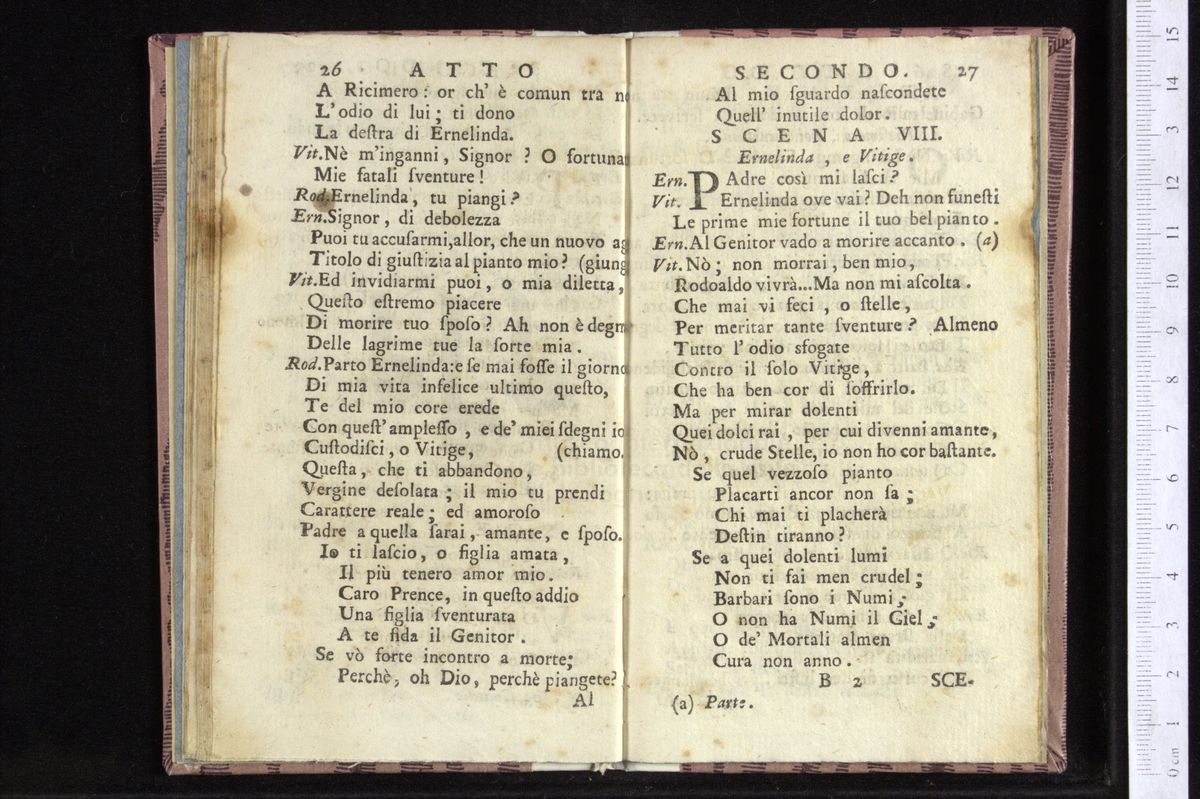 26 ATTO
A Ricimero: or ch' è comun tra
L'odio di lui; ti dono
La deſtra di Ernelinda.
Vit.Nè m'inganni, Signor ? O
Mie fatali ſventure!
Rod.Ernelinda, tu piangi?
Ern.Signor, di debolezza
Puoi tu accuſarmi,allor, che un nuovo
Titolo di giuſtizia al pianto mio?
Vit.Ed invidiarmi puoi, o mia diletta,
Queſto eſtremo piacere
Di morire tuo ſpoſo? Ah non è
Delle lagrime tue la ſorte mia.
Rod.Parto Ernelinda:e ſe mai foſſe il
Di mia vita infelice ultimo queſto,
Te del mio core erede
Con queſt'ampleſſo, e de' miei ſdegni io
Cuſtodiſci, o Vitige, (chiamo.
Queſta, che ti abbandono,
Vergine deſolata; il mio tu prendi
Carattere reale; ed amoroſo
Padre a quella ſarai, amante, e ſpoſo.
Io ti laſcio, o figlia amata,
Il più tenero amor mio.
Caro Prence, in queſto addio
Una figlia ſventurata
A te fida il Genitor.
Se vò forte incontro a morte;
Perchè, oh Dio, perchè piangete?
Al
SECONDO. 27
Al mio ſguardo naſcondete
Quell' inutile dolor.
SCENA VIII.
Ernelinda, e Vitige.
Ern. PAdre così mi laſci?
Vit. Ernelinda ove vai? Deh non funeſti
Le prime mie fortune il tuo bel pianto.
Ern.Al Genitor vado a morire accanto. (a)
Vit.Nò; non morrai, ben mio,
Rodoaldo vivrà...Ma non mi aſcolta.
Che mai vi feci, o ſtelle,
Per meritar tante ſventure? Almeno
Tutto l'odio sfogate
Contro il ſolo Vitige,
Che ha ben cor di ſoffrirlo.
Ma per mirar dolenti
Quei dolci rai, per cui divenni amante,
Nò, crude Stelle, io non ho cor baſtante.
Se quel vezzoſo pianto
Placarti ancor non ſa;
Chi mai ti placherà
Deſtin tiranno?
Se a quei dolenti lumi
Non ti fai men crudel;
Barbari ſono i Numi;
O non ha Numi il Ciel;
O de' Mortali almen
Cura non anno.
B 2 SCE-
(a) Parte.
0 cm 1 2 3 4 5 6 7 8 9 10 11 12 13 14 15